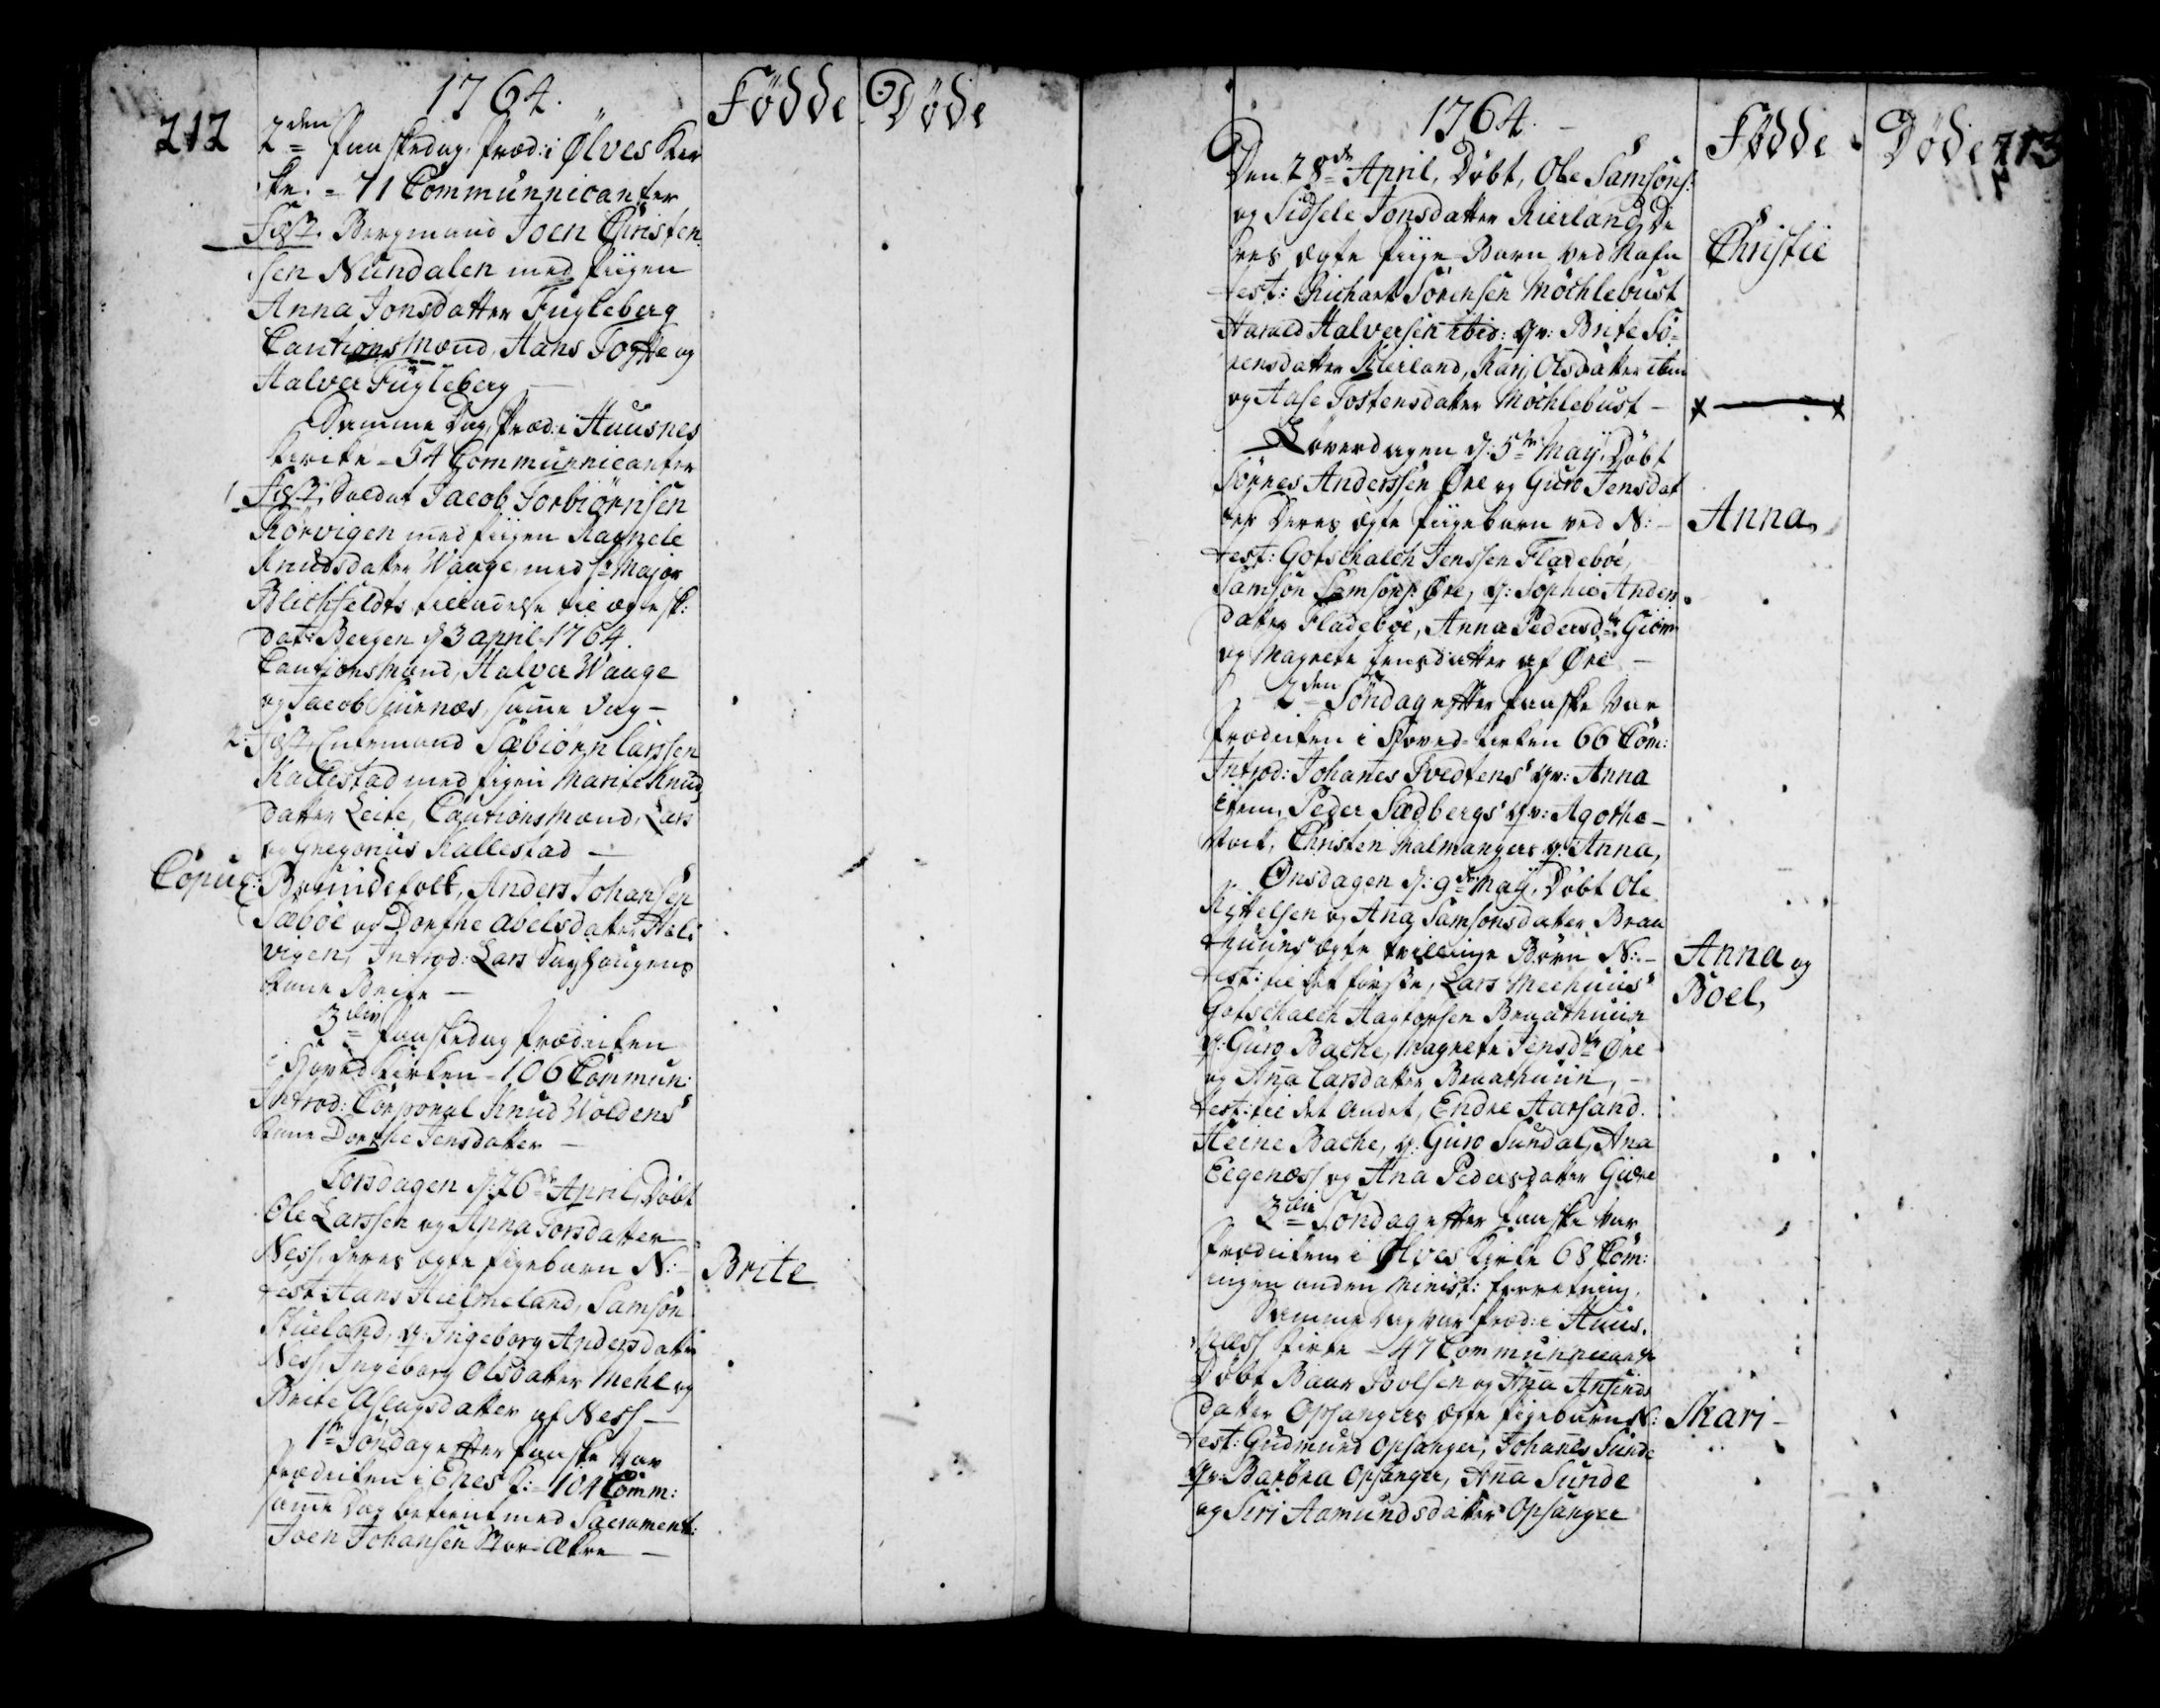 212
1764.
Fødde
Døde
2den Paaskedag, Præd: i Ølves Kir
ke. = 71 Communnicanter
Fæst: Bergmand Joen Christen
sen Nundalen med Piigen
Anna Jonsdatter Fugleberg
Cautions Mænd, Hans Tofte og
Halver Fugleberg
Samme Dag, Præd: i Huusnes
Kirke = 54 Communnicanter
1 Fæst: Soldat Jacob Torbiørnsen
Rørvigen med Piigen Ragnele
Knudsdatter Waage, med Hr Major
Blichfeldts tilladelse til ægtesk:
dat: Bergen d: 3 april = 1764.
Cautions Mænd, Halver Waage
og Jacob samme Dag -
2: Fæst: Enkemand Sæbiørn Larssen
Kallestad med Pigen Marite Knuds
datter Leite, Cautions Mænd, Lars
og Gregorius Kallestad -
Copul: Brundefolk, Anders Johansen
Sæbøe og Dorthe Abelsdatter
vigen, Introd: Lars
Kone Brite -
3die Paaskedag Prædiken
i Hoved Kirken = 106 Commun:
Introd: Corporal Knud Woldens
Kone Dorthe Jensdatter -
Torsdagen d: 26de April, Døbt
Ole Larssen og Anna Torsdatter
Ness, deres ægte Pigebarn N: -
Brite
Test: Hans Hielmeland, Samson
Stueland, q: Ingeborg Andersdatter
Ness, Ingeborg Olsdatter Mehl og
Brite Aslagsdatter af Ness -
1te Søndag efter Paaske var
Prædiken i Enes K: = 104 Comm:
samme Dag betient med Sacrament:
Joen Johansen Stor-Æbre -
1764. -
Fødde
Døde
213
Den 28de April, Døbt, Ole Samsons:
og Sidsele Jonsdatter Kierland, De
res ægte Piige-Barn ved Nafn
Christie
Test: Richart Sørensen Møchlebust
Harald Halversen ibid: qv: Brite Sø=
rensdatter Kierland, Kari Olsdatter ibm
og Aase Tostensdatter Møchlebust -
Løverdagen d: 5te Maij, Døbt
Sørnes Anderssen Øre og Guro Jensdat
ter Deres ægte Piigebarn ved N: -
Anna,
Test: Gotschalch Jenssen Fladebøe,
Samson Samsons: Øre, q: Sophie Anders
datter Fladebøe, Anna Pedersdtr Giøre
og Magrete Jensdatter af Øre -
2den Søndag efter Paaske var
Prædiken i Hoved-Kirken 66 Com:
Introd: Johanes Tvedtens qv: Anna
item, Peder Sædbergs qv: Agothe -
Christen Malmangers q: Anna,
Onsdagen d: 9de Maij, Døbt Ole
Kittelsen og Ana Samsonsdatter Braat
huuns ægte tvillinge Børn N: -
Anna og
Boel,
Test: til det første, Lars Meehuus
Gotschalch Hagtorsen Braathuun
q: Guro Bache, Magrete Jensdtr Øre
og Ana Larsdatter Braathuun, -
Test: til det Andet, Endre Aarsand.
Heine Bache, q: Guro Sundal, Ana
Eegenæss og Ana Pedersdatter Giøre
3die Søndag efter Paaske var
Prædiken i Ølves Kirke 68 Com:
ingen anden Minist: forretning.
Samme Dag var Præd: i Huus=
næss Kirke = 47 Communnicanter
Døbt Baar Polsen og Ana Amunds
datter Opsangers ægte Pigebarn N:
Skari -
Test: Gudmund Opsanger, Johanes Sunde
qv: Barbra Opsanger, Ana Sunde
og Siri Aamundsdatter Opsanger